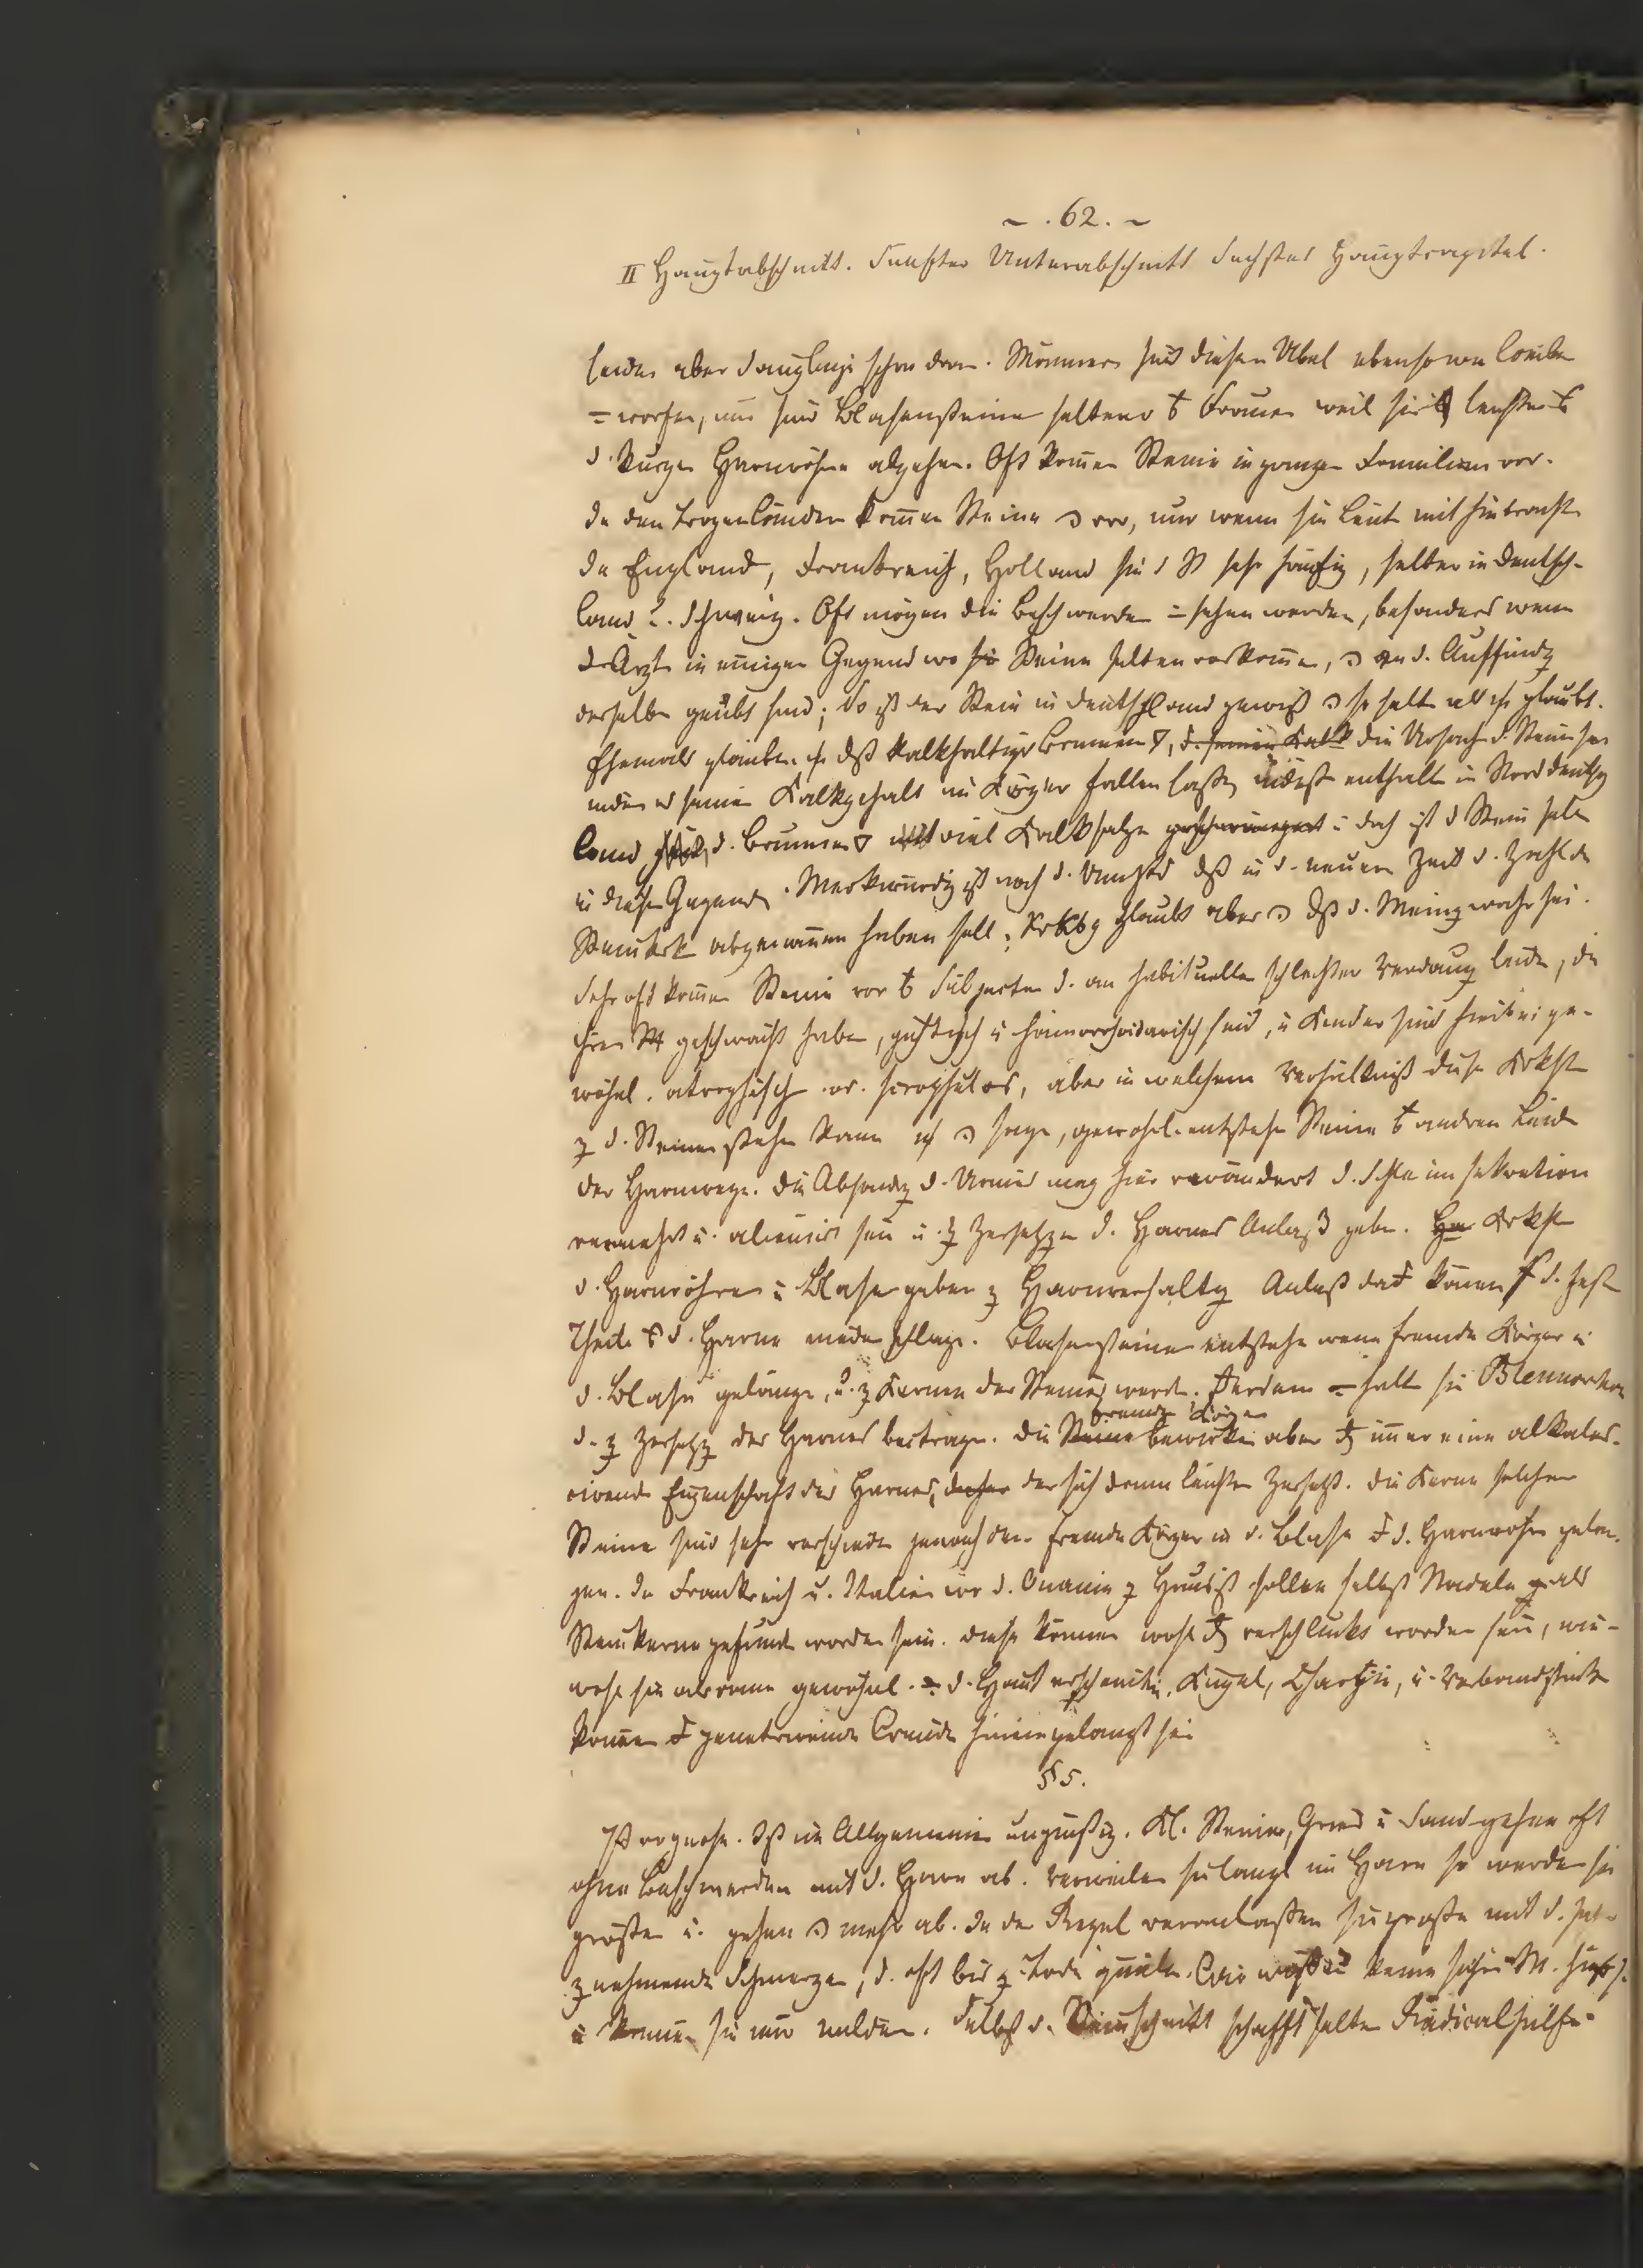 ~ . 62. ~
II Hauptabschnitt. Funfter Unterabschnitt Sechstes Hauptcapitel.
leiden aber Sauglinge schon dran. Männer sind diesen Übel ebenso wie Weiber
= worfen, nur sind Blasensteine seltener Frauen weil sie leichter
d. kurze Harnröhre abgehen. Oft komen Steine in ganzen Familien vor.
In den Tropenländern komen Steine vor, nur wenn sie Leute mit hinbracht.
In England, Frankreich, Holland sind St sehr häufig, selten in Deutsch-
land u. Schweiz. Oft mögen die Beschwerden = sehen werden, besonders wenn
d. Ärzte in einigen Gegend wo Steine selten vorkomen, an d. Auffindg
derselben geübt sind; So ist der Stein in Deutschland gewiß so selten als ich glaubt.
Ehemals glaubte daß kalkhaltige Brunnen, d. seinen Kalk die Ursache d. Steine sei
indem er seinen Kalkgehalt im Körper fallen laßen, indeß enthalten in Norddeutsch
land d. Brunnen viel Kalksalze geschwängert u doch ist d Stein selten
in diesen Gegenden. Merkwürdig ist noch d. Umstand daß in d. neuern Zeit d. Zahl der
Steinkrk abgenomen haben soll; glaubt aber daß d. Meing wahr sei.
Sehr oft komen Steine vor Subjecten d. an habitueller schlechter Verdauung leiden, die
ihren geschwächt haben, gichtisch u hämorrhoidarisch sind, u Kinder sind hiebei ge-
wöhnl. atrophisch od. scrophulös, aber in welchem Verhältniß diese Krkht
z d. Steinen stehen kann ich sagen, gewöhnl. entstehen Steine andern Leiden
der Harnwege. Die Absondg d. Urins mag hier verändert d. Schleimsekretion
vermehrt u. alienirt sein u. z Zersetzg d. Harnes Anlaß geben. Krkht
d. Harnröhre u Blase geben z Harnverhaltg Anlaß können d. fest
Theile d. Harne niederschlage. Blasensteine entstehe wenn fremde Körper in
d. Blase gelange, u. z Kerne der Steine werd. = halt sie Blennorrhoe
d. z Zersetzg des Harnes beitrage. Die Steine bewirken aber immer eine alkales-
fremde Körper
cirende Eigenschaft des Harnes, daher der sich dann leichter zersetzt. Die Kerne solcher
Steine sind sehr verschieden jenachdem fremde Körper in d. Blase d. Harnröhre gelan-
gen. In Frankreich u. Italien wo d. Onanie z Hause ist sollen selbst Nadeln als
Steinkerne gefunden worden sein. diese können wohl verschluckt worden sein, wie-
wohl sie alsdann gewöhnl. d. Haut erscheinen. Kugel, Charpie, u. Verbandstücke
können penetrirende Wunde hineingelangt sein
§ 5.
Prognose. Ist im Allgemeinen ungünstig. Kl. Steine, Gries u Sand gehen oft
ohne Beschwerden mit d. Harn ab. Verweilen sie lange im Harn so werden sie
größer u. gehen mehr ab. In der Regel veranlaßen sie große mit d. Zeit
zunehmende Schmerzen, d. oft bis z. Tode quälen. Wir kenne sichre M.
u können sie nur mildern. Selbst d. Steinschnitt schafft selten Radicalhilfe.